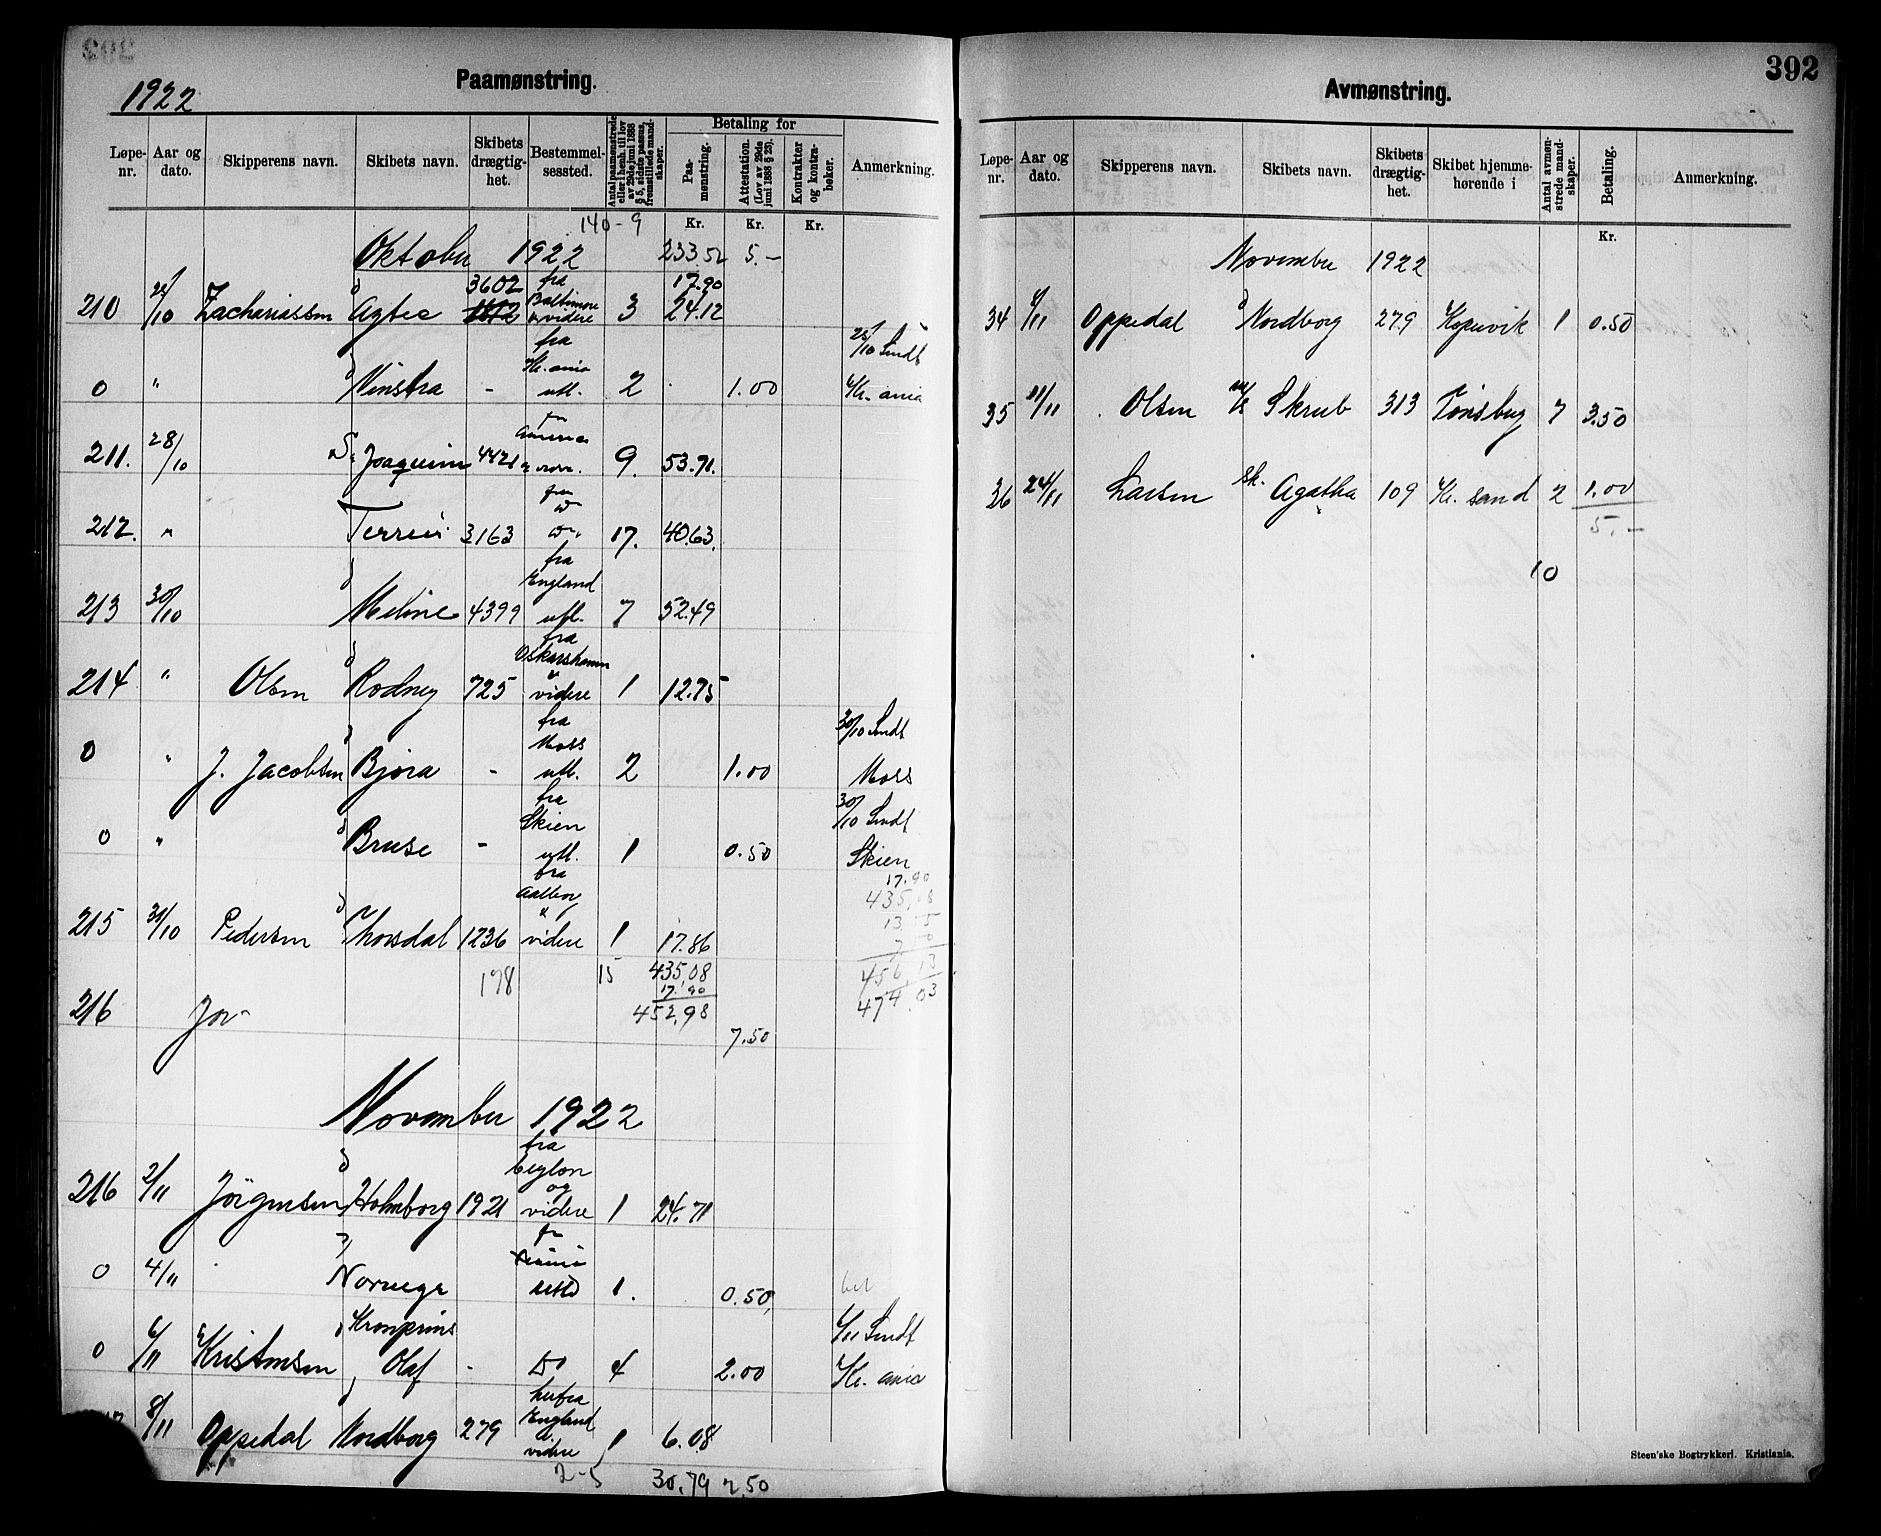 1922
Paamønstring.
Løpe-nr. Aar og dato. Skipperens navn. Skibets navn. Skibets drægtighet. Bestemmelsessted. Antal paamønstrede eller i henh. til lov av 29de juni 1888 § 5, sidste passus, fremstillede mandskaper. Betaling for Paamønstring. Attestation. (Lov av 29de juni 1888 § 23). Kontrakter og kontrabøker. Anmerkning.
140-9 Kr. Kr. Kr.
Oktober 1922 233.52 5.-
3602 fra 17.90
210 /10 Zachariassen Agtea Baltimore & videre 3 24.12
fra 25/10 Sendt
0 " Vinstra - Kr.ania utl. 2 1.00 Kr.ania
211. 28/10 S. Joaquim 4421 America 9. 53.71.
212. " Terrier 3163 fra do 17. 40.63.
213 30/10 Meline 4399 fra England utl. 7 52.49
214 " Olsen Rodney 725 fra Oskarshamn & videre 1 12.75
0 " J. Jacobsen Bjøra - fra Moss utl. 2 1.00 30/10 Sendt Moss
0 " Bruse - fra Skien utl. 1 0.50 30/10 Sendt Skien
17.90
435,08
215 31/10 Pedersen Thorsdal 1236 fra Aalborg & videre 1 17.86
198 15 435,08 456,13
17.90
216 Jör- 452,98 474.03
7.50
November 1922
216 2/11 Jörgensen Holmborg 1921 fra Ceylon og videre 1 24.71
0 4/11 Norvega 1. 0.50, bet
0 6/11 Kristensen Kronprins Olaf - Do 4 2.00 6/11 Sendt Kr.ania
8/11 Oppedal Nordborg 279 herfra England & videre 1 6.08
2-5 30.79 7.50
392
Avmønstring.
Løpe-nr. Aar og dato. Skipperens navn. Skibets navn. Skibets drægtighet. Skibet hjemmehørende i Antal avmønstrede mandskaper. Betaling. Anmerkning.
Kr.
November 1922
34 6/11 Oppedal Nordborg 279 Kopervik 1 0.50
35 11/11 Olsen m/s Skrub 313 Tønsberg 7 3.50
36 24/11 Larsen sk. Agatha 109 Kr.sand 2 1.00
5.-
10
Steen'ske Bogtrykkeri. Kristiania.